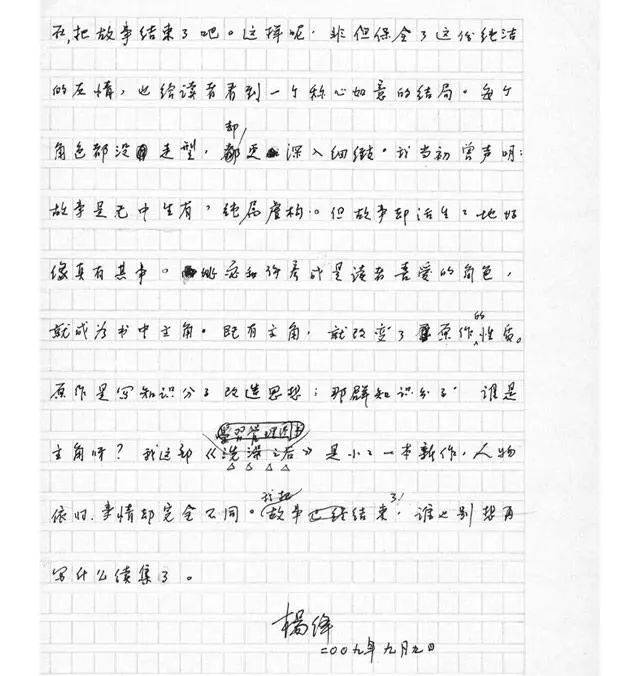 在,把故事结束了吧。这样呢,非但保全了这份纯洁
的友情,也给读者看到一个称心如意的结局。每个
角色都没走型,却更深入细致。我当初曾声明:
故事是无中生有,纯属虚构。但故事却活生生地好
像真有其事。姚宓和许彦成是读者喜爱的角色,
就成为书中主角。既有主角,就改变了原作的性质。
原作是写知识分子改造思想;那群知识分子 谁是
主角呀?我这部《洗澡之后》是小小一本新作,人物
依旧,事情却完全不同。我把故事结束了,谁也别想再
写什么续集了。
楊绛
二〇〇九年九月九日